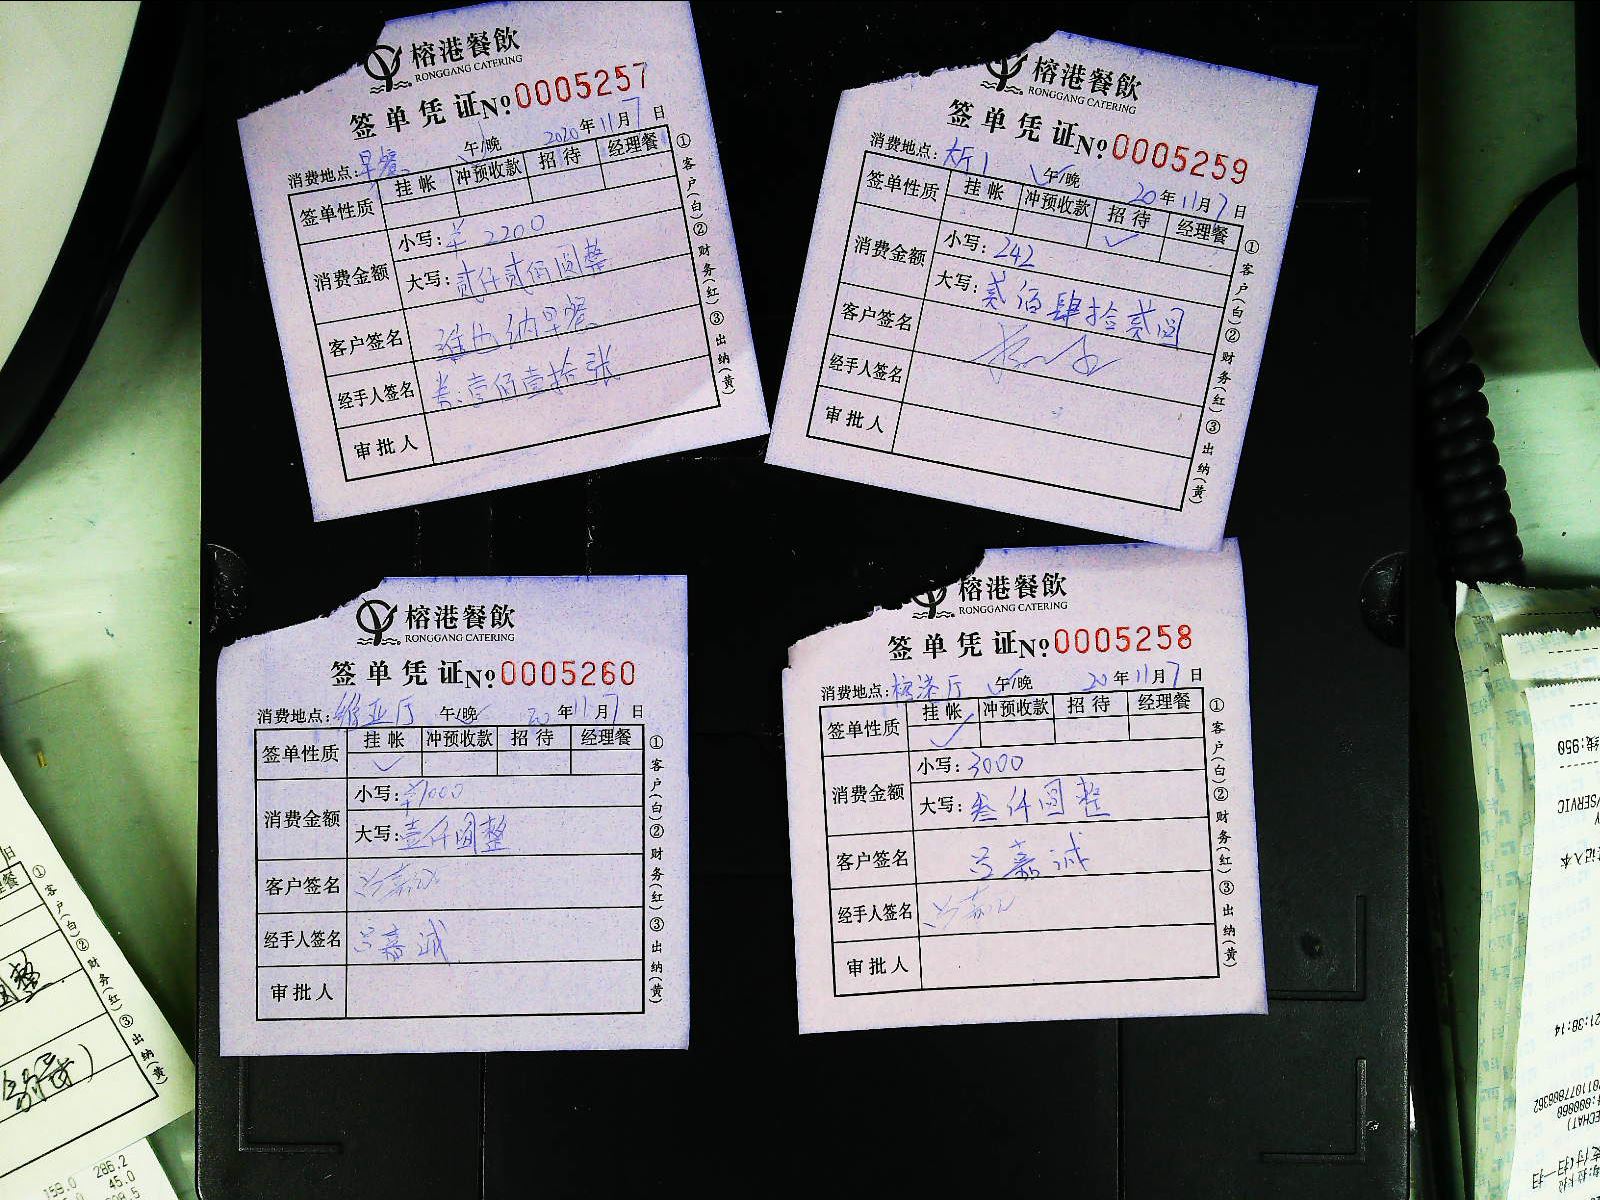 榕港餐飲
RONGGANG CATERING
签单凭证 №0005257
消费地点:早餐 午/晚 2020年11月7日
签单性质 挂帐 冲预收款 招待 经理餐
消费金额 小写:¥2200
大写:贰仟贰佰圆整
客户签名 维也纳早餐
经手人签名 券:壹佰壹拾张
审批人
①客户(白)②财务(红)③出纳(黄)
榕港餐飲
RONGGANG CATERING
签单凭证 №0005259
消费地点: 午/晚 20年11月7日
签单性质 挂帐 冲预收款 招待 经理餐
消费金额 小写:242
大写:贰佰肆拾贰圆
客户签名
经手人签名
审批人
①客户(白)②财务(红)③出纳(黄)
榕港餐飲
RONGGANG CATERING
签单凭证 №0005260
消费地点:维亚厅 午/晚 20年11月7日
签单性质 挂帐 冲预收款 招待 经理餐
消费金额 小写:¥1000
大写:壹仟圆整
客户签名
经手人签名 吕嘉诚
审批人
①客户(白)②财务(红)③出纳(黄)
榕港餐飲
RONGGANG CATERING
签单凭证 №0005258
消费地点:榕港厅 午/晚 20年11月7日
签单性质 挂帐 冲预收款 招待 经理餐
消费金额 小写:3000
大写:叁仟圆整
客户签名 吕嘉诚
经手人签名
审批人
①客户(白)②财务(红)③出纳(黄)
日
①客户(白)②财务(红)③出纳(黄)
整
159.0 286.2
45.0
:950
/SERVIC
21:38:14
ECHAT)
扫一扫